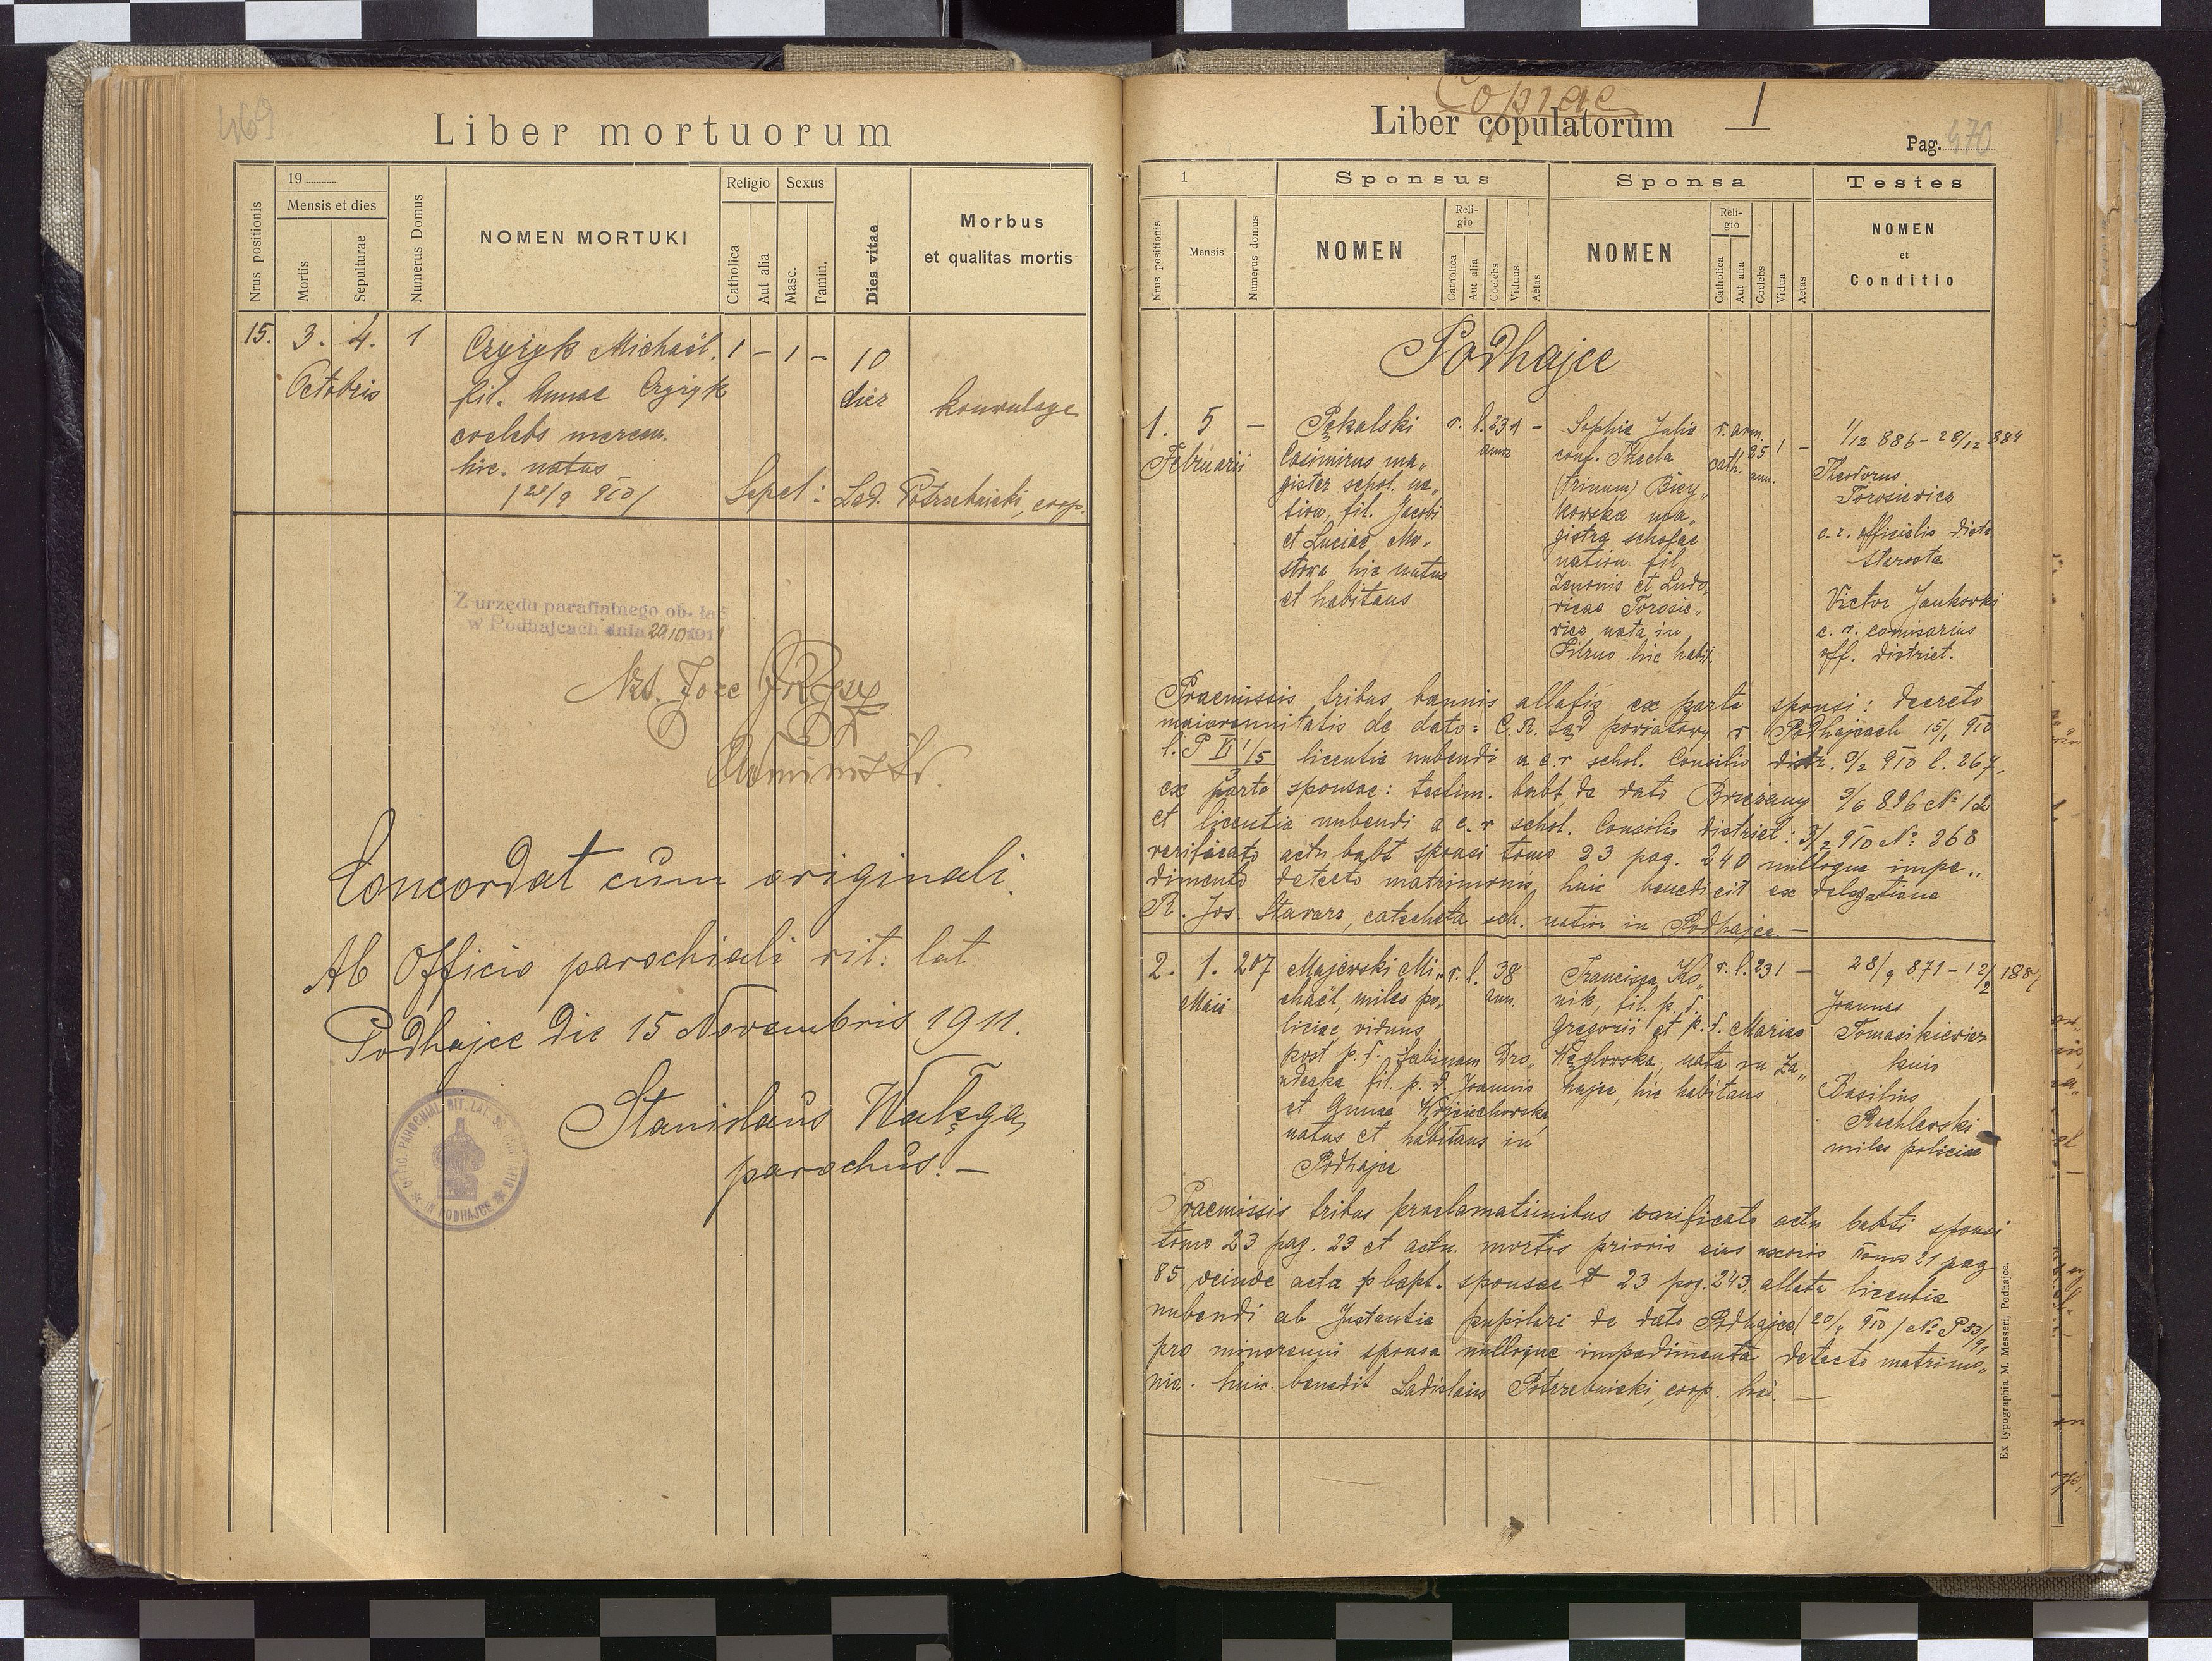 469
Liber mortuorum
Nrus positionis
19
Mensis et dies
Mortis
Sepulturae
Numerus Domus
NOMEN MORTUKI
Religio
Catholica
Aut alia
Sexus
Masc.
Famin.
Dies vitae
Morbus
et qualitas mortis
15. 3. 4. 1 Czyżyk Michaël. 1 – 1 – 10
Octobris fil. Annae Czyżyk dies
coelebs mercen.
hic. natus
Sepel: Lad. Potrzebnicki, coop.
Z urzędu parafialnego ob. łać
w Podhajcach dnia 20/10 1911
Concordat cum originali.
Ab Officio parochiali rit: lat:
Podhajce die 15 Novembris 1911.
Stanislaus Wałęga
parochus. –
IN PODHAJCE
Copiae
Liber copulatorum
1
Pag. 470
1
Nrus positionis
Mensis
Numerus domus
Sponsus
NOMEN
Religio
Catholica
Aut alia
Coelebs
Viduus
Aetas
Sponsa
NOMEN
Religio
Catholica
Aut alia
Coelebs
Vidua
Aetas
Testes
NOMEN
et
Conditio
Podhajce
1. 5 Februarii –
Pąkalski
Casimirus ma„
gister schol. na„
tion, fil. Jacobi
et Luciae Mo„
stowa hic natus
et habitans
r. l. 23 1 –
ann
Sophia Julia
conf. Thecla
(trinum) Bicy„
kowska ma„
gistra scholae
nation fil.
Zenonis et Ludo„
vicae Torosie„
wicz nata in
hic habit.
r. arm.
cath. 25 1 –
ann.
1/12 886 – 28/12 884
Theodorus
Torosiewicz
c. r. officialis
Victor Jankowski
c. r. comisarius
off. district.
Praemissis tribus bannis allatis ex parte sponsi: decreto
maiorennitatis de dato: C. R. Sąd powiatowy w Podhajcach 15/1 910
licentia nubendi a c. r schol. Consilio distr. 9/2 910 l. 267
ex parte sponsae: testim. babt. de dato Brzeżany 9/6 896 No 12
et licentia nubendi a c. r schol. Consilio district: 3/2 910 No: 268
verificato actu babt sponsi tomo 23 pag. 240 nulloque impe„
dimento detecto matrimonio huic benedicit ex delegatione
R. Jos. Stawarz, catecheta sch. nation in Podhajce. –
2. 1. 207
Maii
Majewski Mi„
chaël, miles po„
liciae, viduus
post p. d. Sabinam
fil. p. d. Joannis
et Annae Wojciechowska,
natus et habitans in
Podhajce
r. l. 38
ann.
Francisca Ko„
nik, fil. p. d.
Gregorii et p. d. Mariae
Węglowska, nata in Za„
hajce, hic habitans
r. l. 23 1 –
28/9 871 – 12/2 1887
Joannes
Tomasikiewicz
Basilius
Rachlewski
miles policiae
Praemissis tribus proclamationibus verificato actu babti sponsi
tomo 23 pag. 23 et actu. mortis prioris eius uxoris tomo 21 pag
85, deinde acta bapt. sponsae t 23 pag. 243, allata licentia
nubendi ab Instantia pupilari de dato Podhajce
pro minorenni sponsa nulloque impedimento detecto matrimo„
nio. huic. benedit Ladislaus Potrzebnicki, coop. –
Ex typographia M. Messeri, Podhajce.